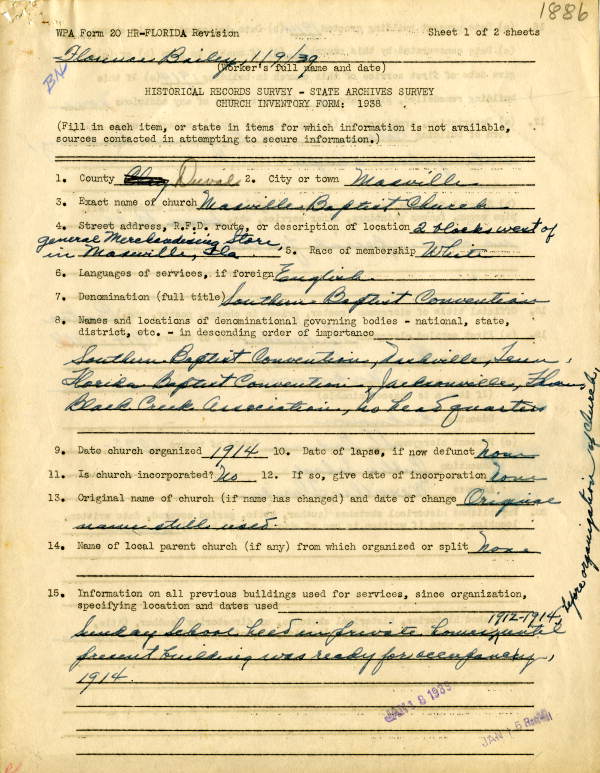 1886
WPA Form 20 HR-FLORIDA Revision Sheet 1 of 2 sheets
Bailey, 1/9/39
(Worker's full name and date)
HISTORICAL RECORDS SURVEY - STATE ARCHIVES SURVEY
CHURCH INVENTORY FORM: 1938
(Fill in each item, or state in items for which information is not available,
sources contacted in attempting to secure information.)
1. County Clay Duval 2. City or town Maxville
3. Exact name of church Maxville Baptist Church
4. Street address, R.F.D. route, or description of location 2 blocks west of
general Merchandising Store,
in Maxville, Fla 5. Race of membership White
6. Languages of services, if foreign English
7. Denomination (full title) Southern Baptist Convention
8. Names and locations of denominational governing bodies - national, state,
district, etc. - in descending order of importance
Southern Baptist Convention, Nashville, Tenn,
Florida Baptist Convention, Jacksonville,
Black Creek Association, no headquarters
9. Date church organized 1914 10. Date of lapse, if now defunct none
11. Is church incorporated? No 12. If so, give date of incorporation none
13. Original name of church (if name has changed) and date of change Original
name still used.
14. Name of local parent church (if any) from which organized or split none
15. Information on all previous buildings used for services, since organization,
specifying location and dates used
1912-1914, before organization of church,
Sunday School held in private homes until
present building was ready for occupancy,
1914.
JAN 18 1939
JAN 15